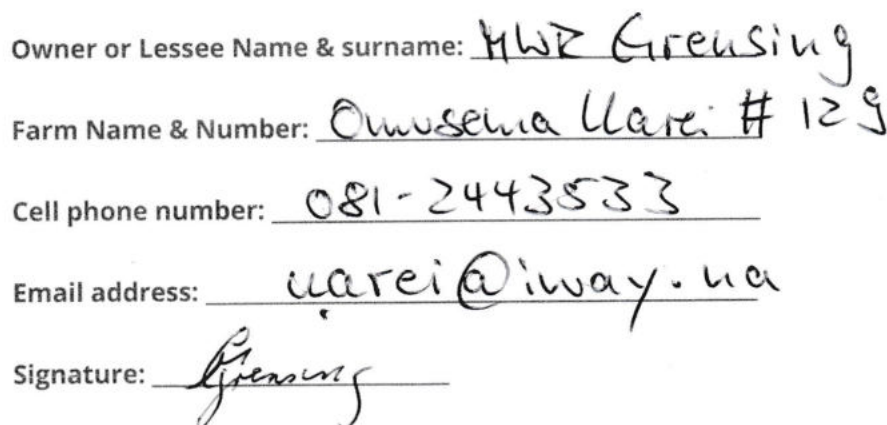 Owner or Lessee Name & surname: HWR Grensing
Farm Name & Number: Omusema Uarei # 129
Cell phone number: 081-2443533
Email address: uarei@iway.na
Signature: Grensing